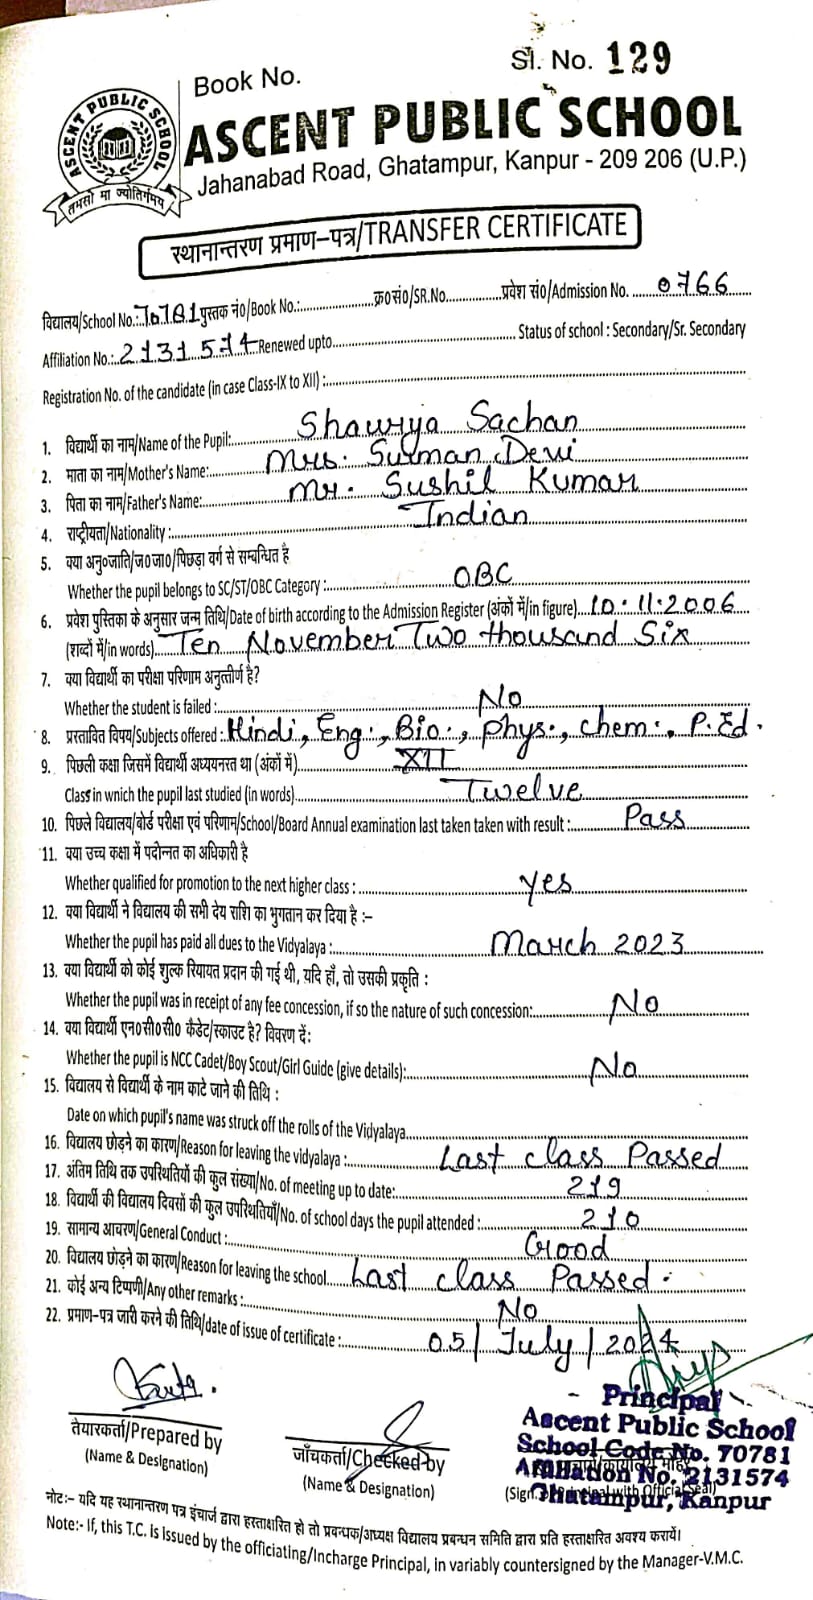 Book No.
Sl. No. 129
ASCENT PUBLIC SCHOOL
तमसो मा ज्योतिर्गमय
ASCENT PUBLIC SCHOOL
Jahanabad Road, Ghatampur, Kanpur - 209 206 (U.P.)
स्थानान्तरण प्रमाण-पत्र/TRANSFER CERTIFICATE
विद्यालय/School No.: 70781 पुस्तक नं0/Book No.:.......... क्र0सं0/SR.No.......... प्रवेश सं0/Admission No. .... 0766
Affiliation No.: 2131574 Renewed upto.......... Status of school : Secondary/Sr. Secondary
Registration No. of the candidate (in case Class-IX to XII) :..........
1. विद्यार्थी का नाम/Name of the Pupil: Shaurya Sachan
2. माता का नाम/Mother's Name: Mrs. Suman Devi
3. पिता का नाम/Father's Name: Mr. Sushil Kumar
4. राष्ट्रीयता/Nationality : Indian
5. क्या अनु०जाति/ज०जा०/पिछड़ा वर्ग से सम्बन्धित है
Whether the pupil belongs to SC/ST/OBC Category : OBC
6. प्रवेश पुस्तिका के अनुसार जन्म तिथि/Date of birth according to the Admission Register (अंकों में/in figure) 10.11.2006
(शब्दों में/in words) Ten November Two thousand Six
7. क्या विद्यार्थी का परीक्षा परिणाम अनुत्तीर्ण है?
Whether the student is failed : No
8. प्रस्तावित विषय/Subjects offered : Hindi, Eng., Bio., Phys., chem., P.Ed.
9. पिछली कक्षा जिसमें विद्यार्थी अध्ययनरत था (अंकों में) XII
Class in wnich the pupil last studied (in words) Twelve
10. पिछले विद्यालय/बोर्ड परीक्षा एवं परिणाम/School/Board Annual examination last taken taken with result : Pass
11. क्या उच्च कक्षा में पदोन्नत का अधिकारी है
Whether qualified for promotion to the next higher class : yes
12. क्या विद्यार्थी ने विद्यालय की सभी देय राशि का भुगतान कर दिया है :-
Whether the pupil has paid all dues to the Vidyalaya : March 2023
13. क्या विद्यार्थी को कोई शुल्क रियायत प्रदान की गई थी, यदि हाँ, तो उसकी प्रकृति :
Whether the pupil was in receipt of any fee concession, if so the nature of such concession: No
14. क्या विद्यार्थी एन०सी०सी० कैडेट/स्काउट है? विवरण दें:
Whether the pupil is NCC Cadet/Boy Scout/Girl Guide (give details): No
15. विद्यालय से विद्यार्थी के नाम काटे जाने की तिथि :
Date on which pupil's name was struck off the rolls of the Vidyalaya..........
16. विद्यालय छोड़ने का कारण/Reason for leaving the vidyalaya : Last class Passed
17. अंतिम तिथि तक उपस्थितियों की कुल संख्या/No. of meeting up to date: 219
18. विद्यार्थी की विद्यालय दिवसों की कुल उपस्थितियाँ/No. of school days the pupil attended : 210
19. सामान्य आचरण/General Conduct : Good
20. विद्यालय छोड़ने का कारण/Reason for leaving the school Last class Passed.
21. कोई अन्य टिप्पणी/Any other remarks : No
22. प्रमाण-पत्र जारी करने की तिथि/date of issue of certificate : 05/July/2024
तैयारकर्ता/Prepared by
(Name & Designation)
जाँचकर्ता/Checked by
(Name & Designation)
Principal
Ascent Public School
School Code No. 70781
Affiliation No. 2131574
Ghatampur, Kanpur
नोट:- यदि यह स्थानान्तरण पत्र इंचार्ज द्वारा हस्ताक्षरित हो तो प्रबन्धक/अध्यक्ष विद्यालय प्रबन्धन समिति द्वारा प्रति हस्ताक्षरित अवश्य करायें।
Note:- If, this T.C. is Issued by the officiating/Incharge Principal, in variably countersigned by the Manager-V.M.C.